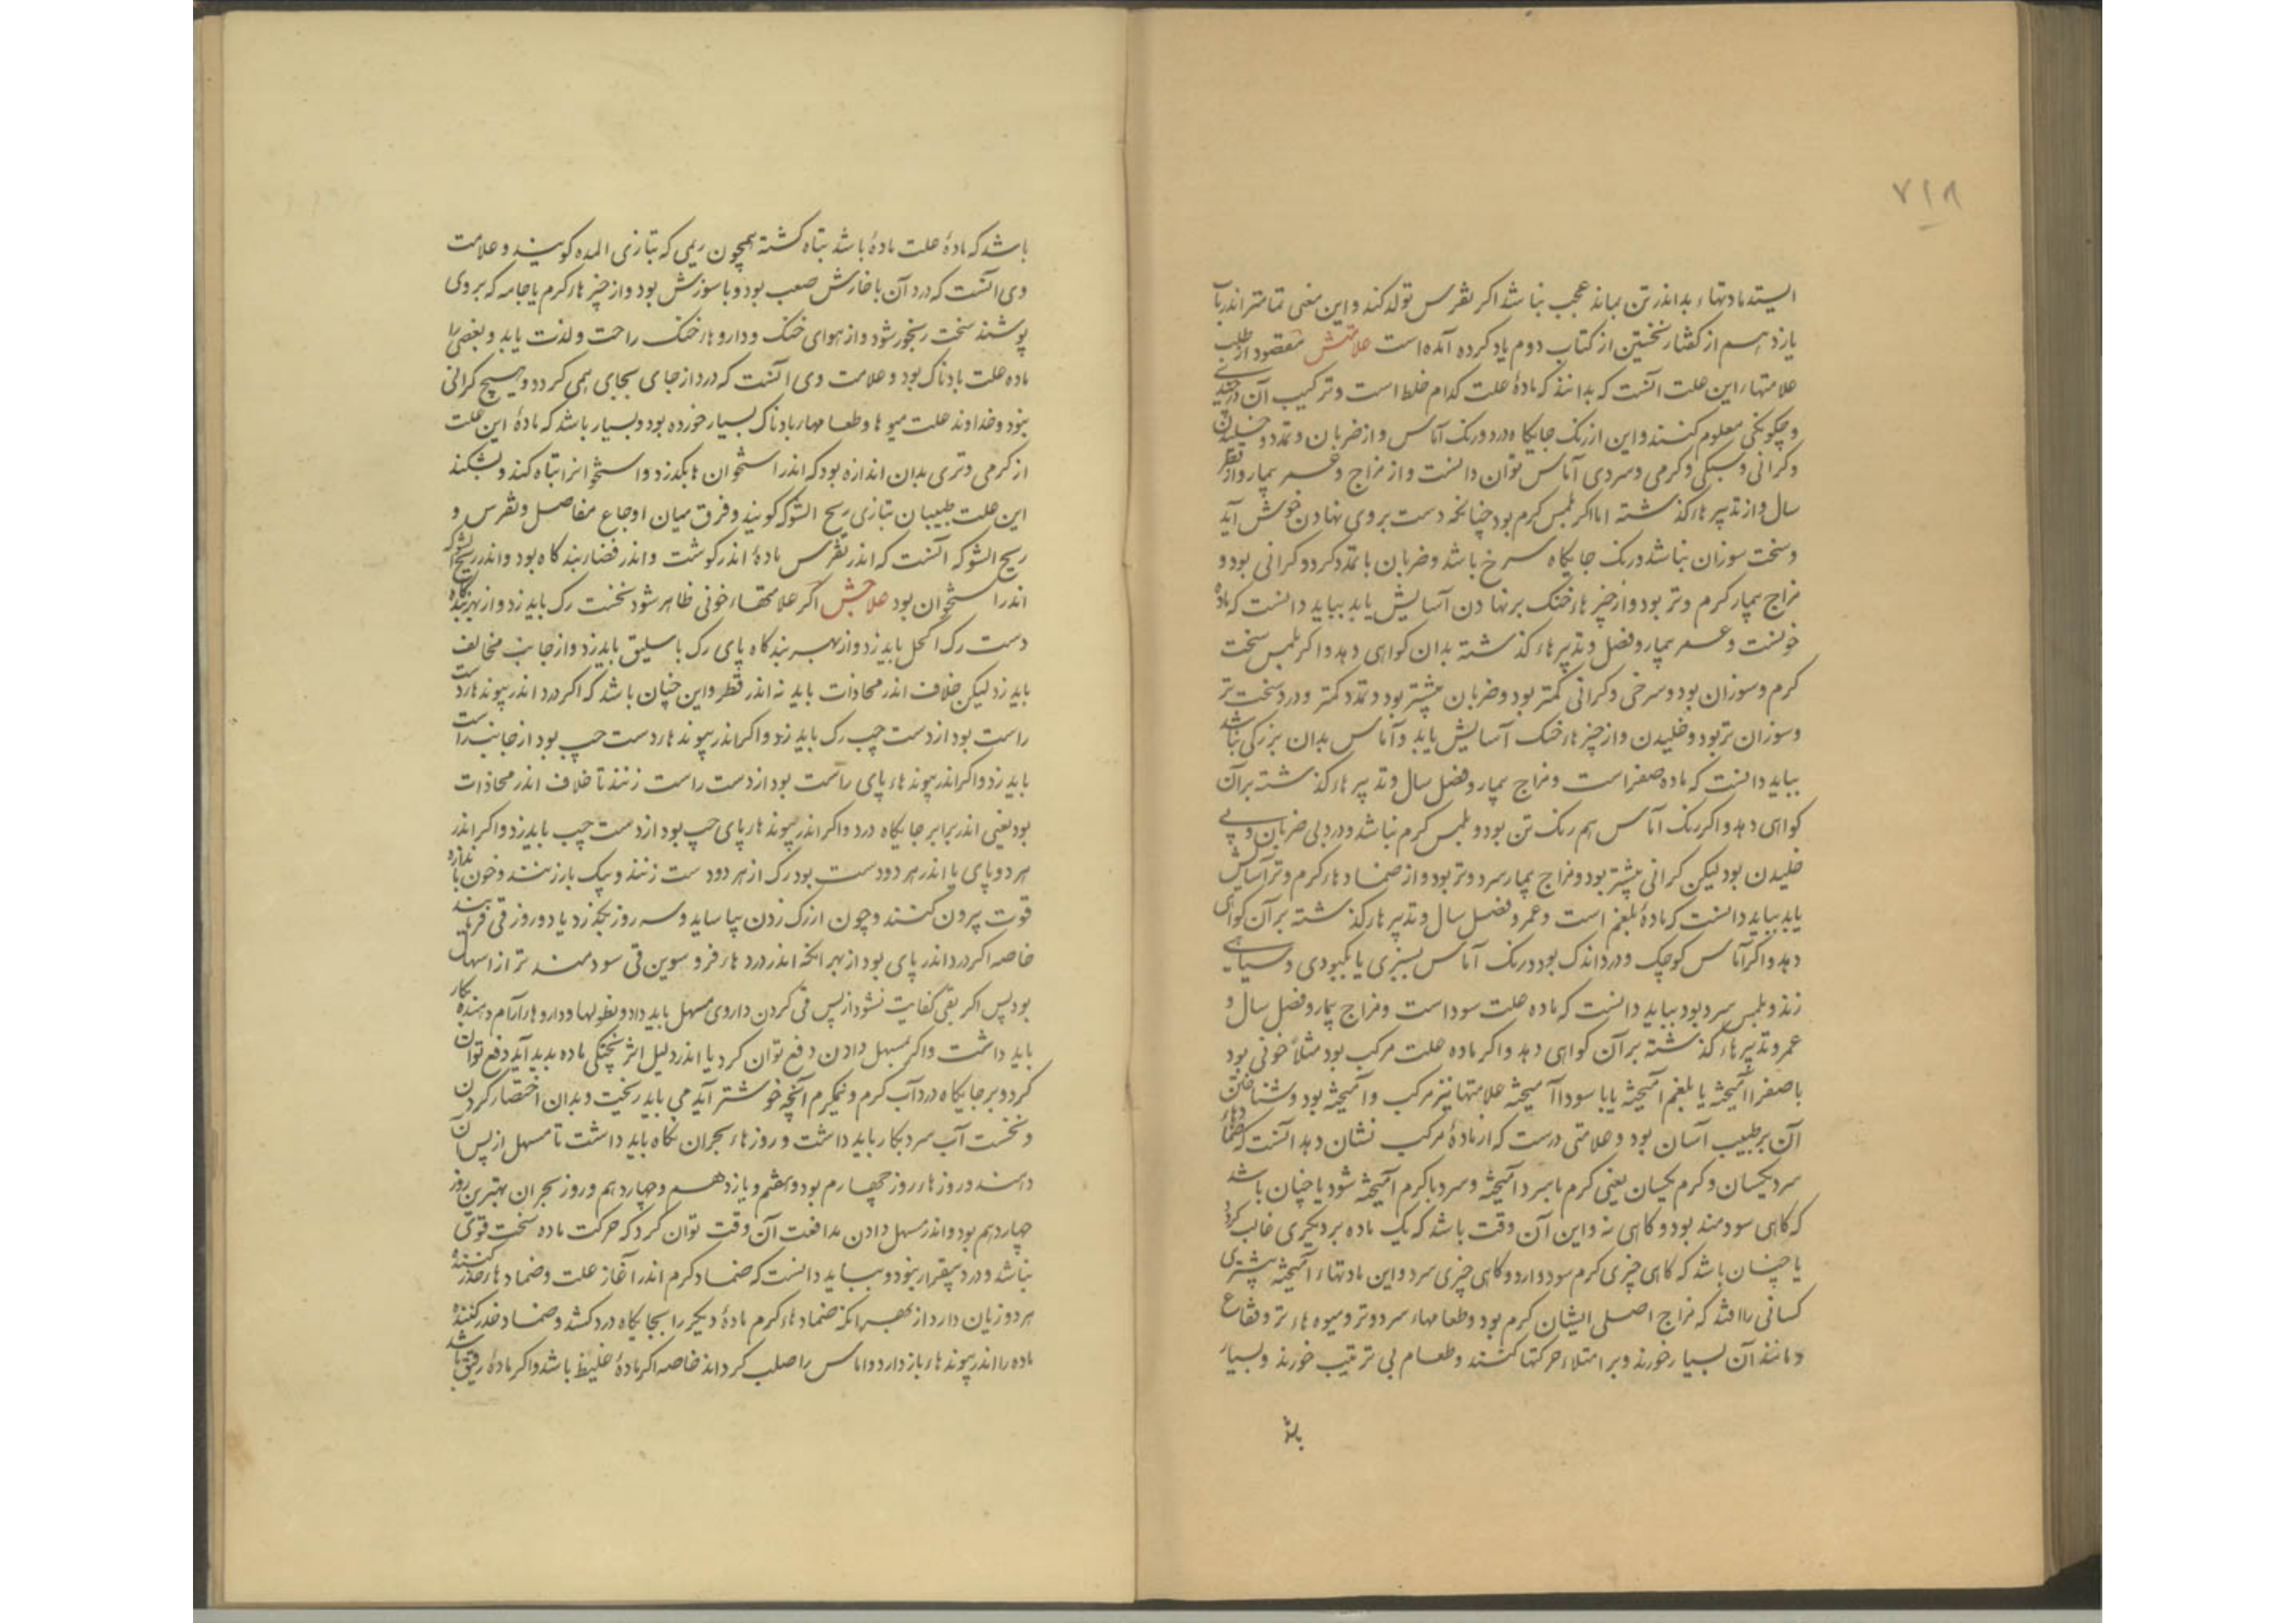 ۷۱۸
ایستد مادتهاء بد اندر تن بماند عجب نباشد اکر نقرس تولد کند و این معنی تمامتر اندر باب
یازدهم از کفتار نخستین از کتاب دوم یاد کرده آمده است علامتش مقصود از طلب
علامتهاء این علت آنست که بدانند که مادهٔ علت کدام خلط است و ترکیب آن
و چکونکی معلوم کنند و این از رنک جایکاه درد و رنک آماس و از ضربان و تمدد و خلیدن
و کرانی و سبکی و کرمی و سردی آماس توان دانست و از مزاج و عمر بیمار و از فصل
سال و از تدبیرهاء کذشته اما اکر بلمس کرم بود چنانکه دست بر وی نهادن خوش آید
و سخت سوزان نباشد و رنک جایکاه سرخ باشد و ضربان با تمدد کردد و کرانی بود و
مزاج بیمار کرم و تر بود و از چیزهاء خنک بر نهادن آسایش یابد بباید دانست که ماده
خونست و عمر بیمار و فصل و تدبیرهاء کذشته بدان کواهی دهد و اکر بلمس سخت
کرم و سوزان بود و سرخی و کرانی کمتر بود و ضربان بیشتر بود و تمدد کمتر و درد سخت تر
و سوزان تر بود و خلیدن و از چیزهاء خنک آسایش یابد و آماس بدان بزرکی نباشد
بباید دانست که ماده صفراست و مزاج بیمار و فصل سال و تدبیرهاء کذشته بر آن
کواهی دهد و اکر رنک آماس هم رنک تن بود و بلمس کرم نباشد و درد بی ضربان و بی
خلیدن بود لیکن کرانی بیشتر بود و مزاج بیمار سرد و تر بود و از ضمادهاء کرم و تر آسایش
یابد بباید دانست که مادهٔ بلغم است و عمر و فصل سال و تدبیرهاء کذشته بر آن کواهی
دهد و اکر آماس کوچک و درد اندک بود و رنک آماس بسبزی یا بکبودی و سیاهی
زند و بلمس سرد بود بباید دانست که ماده علت سوداست و مزاج بیمار و فصل سال و
عمر و تدبیرهاء کذشته بر آن کواهی دهد و اکر ماده علت مرکب بود مثلا خونی بود
با صفرا آمیخته یا بلغم آمیخته یا با سودا آمیخته علامتها نیز مرکب و آمیخته بود و شناختن
آن بر طبیب آسان بود و علامتی درست که از مادهٔ مرکب نشان دهد آنست که ضمادهاء
سرد یکسان و کرم یکسان یعنی کرم با سرد آمیخته و سرد با کرم آمیخته شود یا چنان باشد
که کاهی سودمند بود و کاهی نه و این آن وقت باشد که یک ماده بر دیکری غالب کردد
یا چنان باشد که کاهی چیزی کرم سود دارد و کاهی چیزی سرد و این مادتهاء آمیخته بیشتری
کسانی را افتد که مزاج اصلی ایشان کرم بود و طعامهاء سرد و تر و میوه هاء تر و فقاع
و مانند آن بسیار خورند و بر امتلاء حرکتها کنند و طعام بی ترتیب خورند و بسیار
باشد
باشد که مادهٔ علت مادهٔ باشد تباه کشته همچون ریمی که بتازی المده کویند و علامت
وی آنست که درد آن با خارش صعب بود و با سوزش بود و از چیزهاء کرم یا جامه که بر وی
پوشند سخت رنجور شود و از هوای خنک و داروهاء خنک راحت و لذت یابد و بعضی را
ماده علت بادناک بود و علامت وی آنست که درد از جای بجای همی کردد و هیچ کرانی
نبود و خداوند علت میوها و طعامهاء بادناک بسیار خورده بود و بسیار باشد که مادهٔ این علت
از کرمی و تری بدان اندازه بود که اندر استخوان ها بکذرد و استخوانرا تباه کند و بشکند
این علت طبیبان بتازی ریح الشوکه کویند و فرق میان اوجاع مفاصل و نقرس و
ریح الشوکه آنست که اندر نقرس مادهٔ اندر کوشت و اندر فضاء بندکاه بود و اندر ریح الشوکه
اندر استخوان بود علاجش اکر علامتهاء خونی ظاهر شود نخست رک باید زد و از بهر بندکاه
دست رک اکحل باید زد و از بهر بندکاه پای رک باسلیق باید زد و از جانب مخالف
باید زد لیکن خلاف اندر محاذات باید نه اندر قطر و این چنان باشد که اکر درد اندر پیوندهاء دست
راست بود از دست چپ رک باید زد و اکر اندر پیوندهاء دست چپ بود از جانب راست
باید زد و اکر اندر پیوندهاء پای راست بود از دست راست زنند تا خلاف اندر محاذات
بود یعنی اندر برابر جایکاه درد و اکر اندر پیوندهاء پای چپ بود از دست چپ باید زد و اکر اندر
هر دو پای یا اندر هر دو دست بود رک از هر دو دست زنند و بیک بار زنند و خون باندازه
قوت بیرون کنند و چون از رک زدن بیاساید و سه روز بکذرد یا دو روز قی فرمایند
خاصه اکر درد اندر پای بود از بهر آنکه اندر دردهاء فرو سوین قی سودمند تر از اسهال
بود پس اکر بقی کفایت نشود از پس قی کردن داروی مسهل باید داد و نطولها و داروهاء آرام دهنده بکار
باید داشت و اکر بمسهل دادن دفع توان کرد یا اندر دلیل اثر پختکی ماده پدید آید دفع توان
کرد و بر جایکاه درد آب کرم و نیمکرم آنچه خوشتر آید می باید ریخت و بدان اختصار کردن
و نخست آب سرد بکار باید داشت و روزهاء بحران نکاه باید داشت تا مسهل از پس آن
دهند و روزهاء روز چهارم بود و هفتم و یازدهم و چهاردهم و روز بحران بهترین روز
چهاردهم بود و اندر مسهل دادن مدافعت آن وقت توان کرد که حرکت ماده سخت قوی
نباشد و درد بیقرار نبود و بباید دانست که ضماد کرم اندر آغاز علت و ضمادهاء خدر کننده
هر دو زیان دارد از بهر آنکه ضمادهاء کرم مادهٔ دیکر را بجایکاه درد کشد و ضماد خدر کننده
ماده را اندر پیوندهاء باز دارد و آماس را صلب کرداند خاصه اکر مادهٔ غلیظ باشد و اکر مادهٔ رقیق باشد